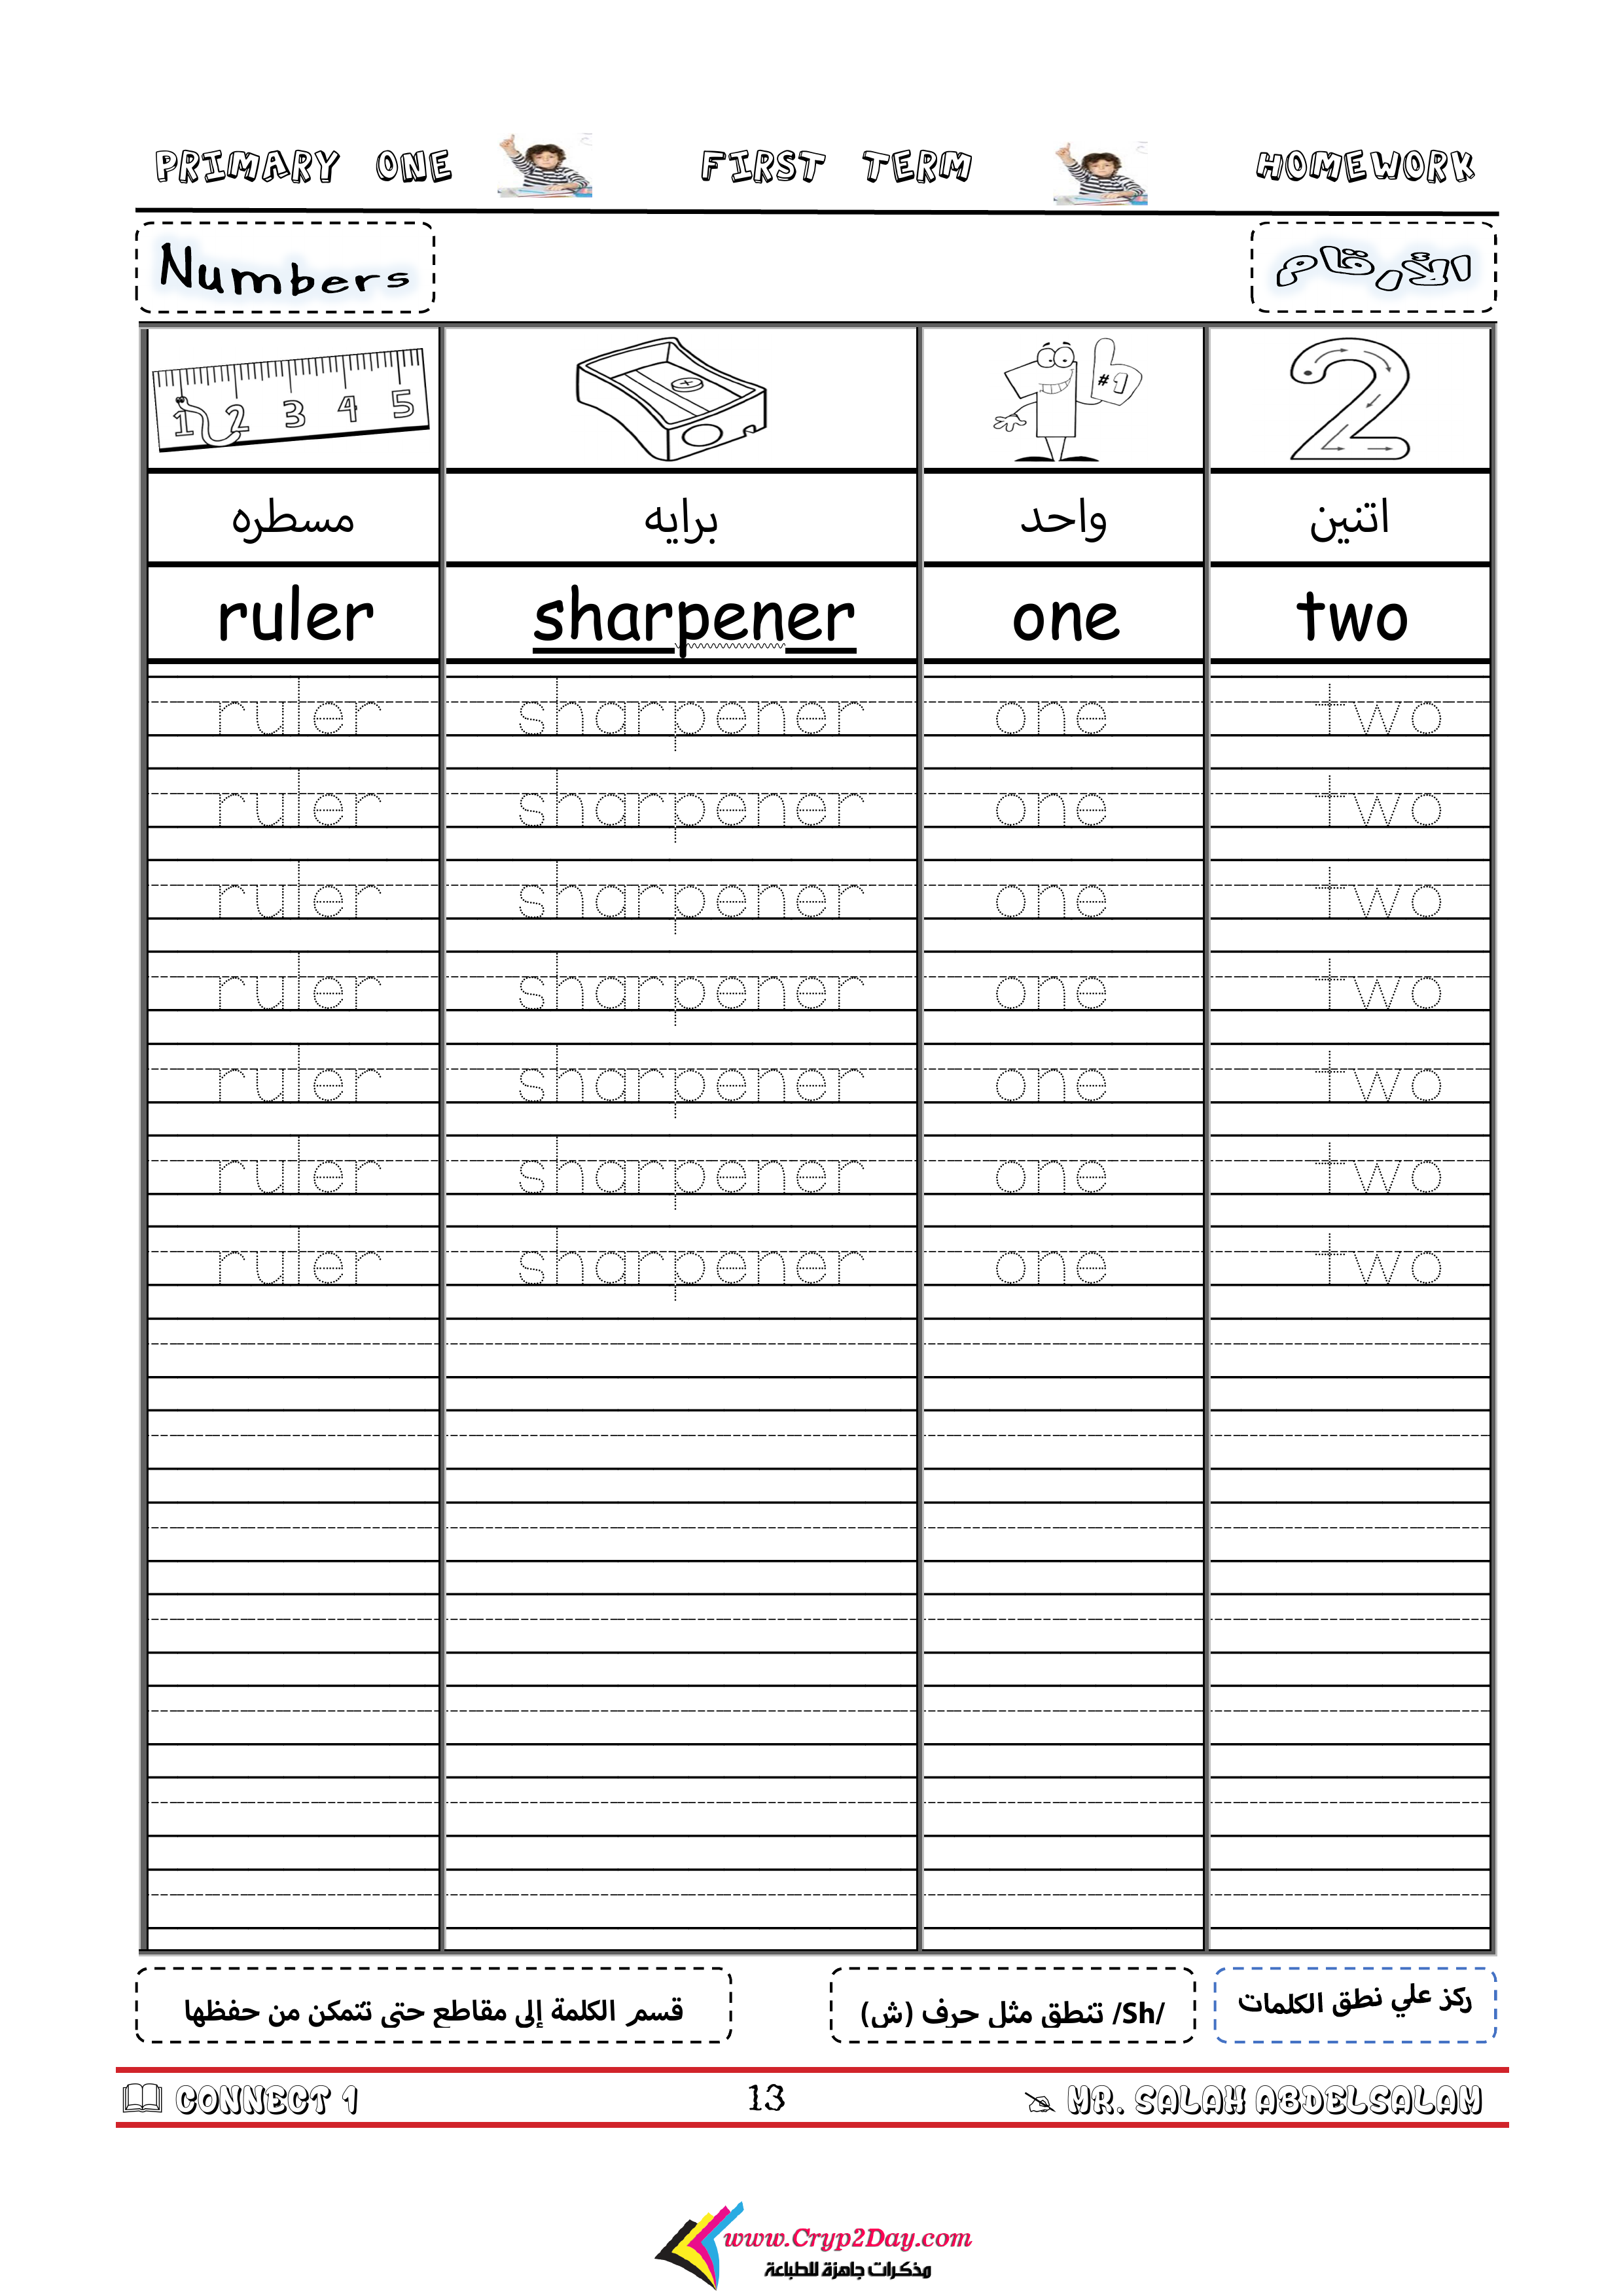 PRIMARY ONE FIRST TERM HOMEWORK
Numbers الأرقام
1 2 3 4 5 #1 2
مسطره برايه واحد اتنين
ruler sharpener one two
ruler sharpener one two
ruler sharpener one two
ruler sharpener one two
ruler sharpener one two
ruler sharpener one two
ruler sharpener one two
ruler sharpener one two
قسم الكلمة إلى مقاطع حتى تتمكن من حفظها
/Sh/ تنطق مثل حرف (ش)
ركز علي نطق الكلمات
CONNECT 1 13 MR. SALAH ABDELSALAM
www.Cryp2Day.com
مذكرات جاهزة للطباعة